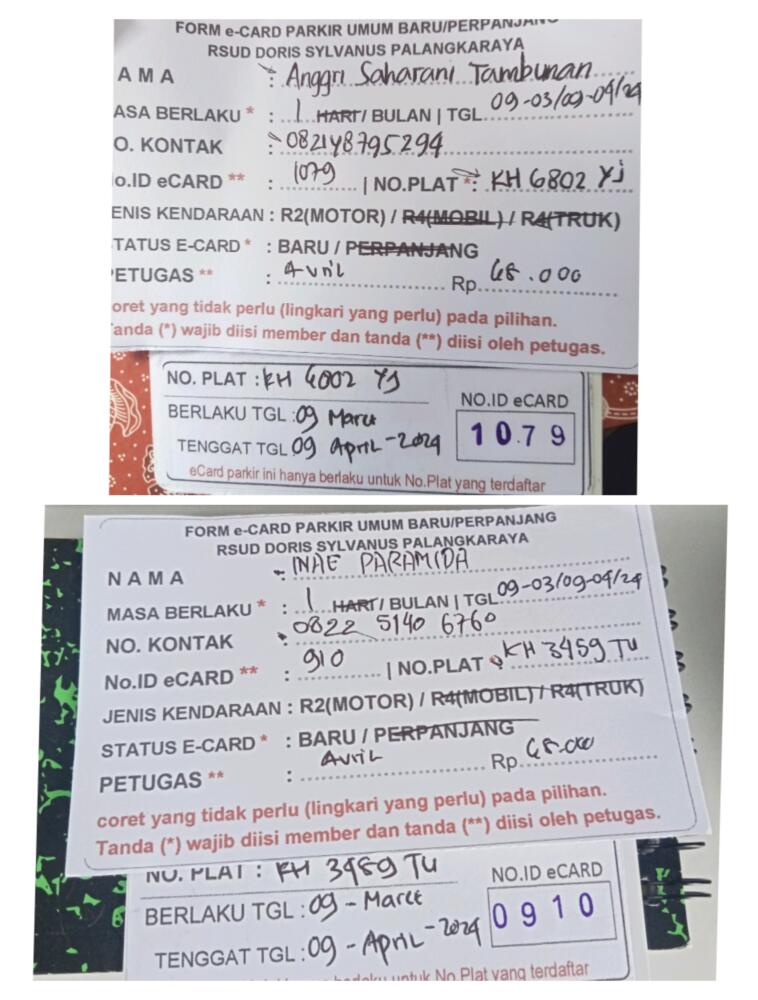 FORM e-CARD PARKIR UMUM BARU/PERPANJANG
RSUD DORIS SYLVANUS PALANGKARAYA
AMA : Anggri Saharani Tambunan
ASA BERLAKU * : 1 HARI / BULAN | TGL 09-03/09-04/24
O. KONTAK : 082148795294
o.ID eCARD ** : 1079 | NO.PLAT *: KH 6802 YJ
ENIS KENDARAAN : R2(MOTOR) / R4(MOBIL) / R4(TRUK)
TATUS E-CARD * : BARU / PERPANJANG
ETUGAS ** : Avril Rp. 68.000
coret yang tidak perlu (lingkari yang perlu) pada pilihan.
anda (*) wajib diisi member dan tanda (**) diisi oleh petugas.
NO. PLAT : KH 6802 YJ
BERLAKU TGL : 09 Maret
TENGGAT TGL 09 April-2024
NO.ID eCARD
10.79
eCard parkir ini hanya berlaku untuk No.Plat yang terdaftar
FORM e-CARD PARKIR UMUM BARU/PERPANJANG
RSUD DORIS SYLVANUS PALANGKARAYA
NAMA : INAE PARAMIDA
MASA BERLAKU * : 1 HARI / BULAN | TGL 09-03/09-04/24
NO. KONTAK : 0822 5140 6760
No.ID eCARD ** : 910 | NO.PLAT KH 3459 TU
JENIS KENDARAAN : R2(MOTOR) / R4(MOBIL) / R4(TRUK)
STATUS E-CARD * : BARU / PERPANJANG
PETUGAS ** : Avril Rp. 68.000
coret yang tidak perlu (lingkari yang perlu) pada pilihan.
Tanda (*) wajib diisi member dan tanda (**) diisi oleh petugas.
NO. PLAT : KH 3459 TU
BERLAKU TGL : 09 - Maret
TENGGAT TGL : 09 - April - 2024
NO.ID eCARD
0910
berlaku untuk No.Plat yang terdaftar